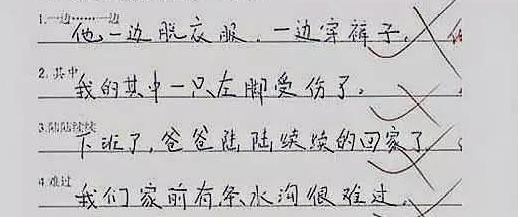 1.一边……一边
他一边脱衣服，一边穿裤子。
2.其中
我的其中一只左脚受伤了。
3.陆陆续续
下班了，爸爸陆陆续续的回家了
4.难过
我们家前有条水沟很难过。